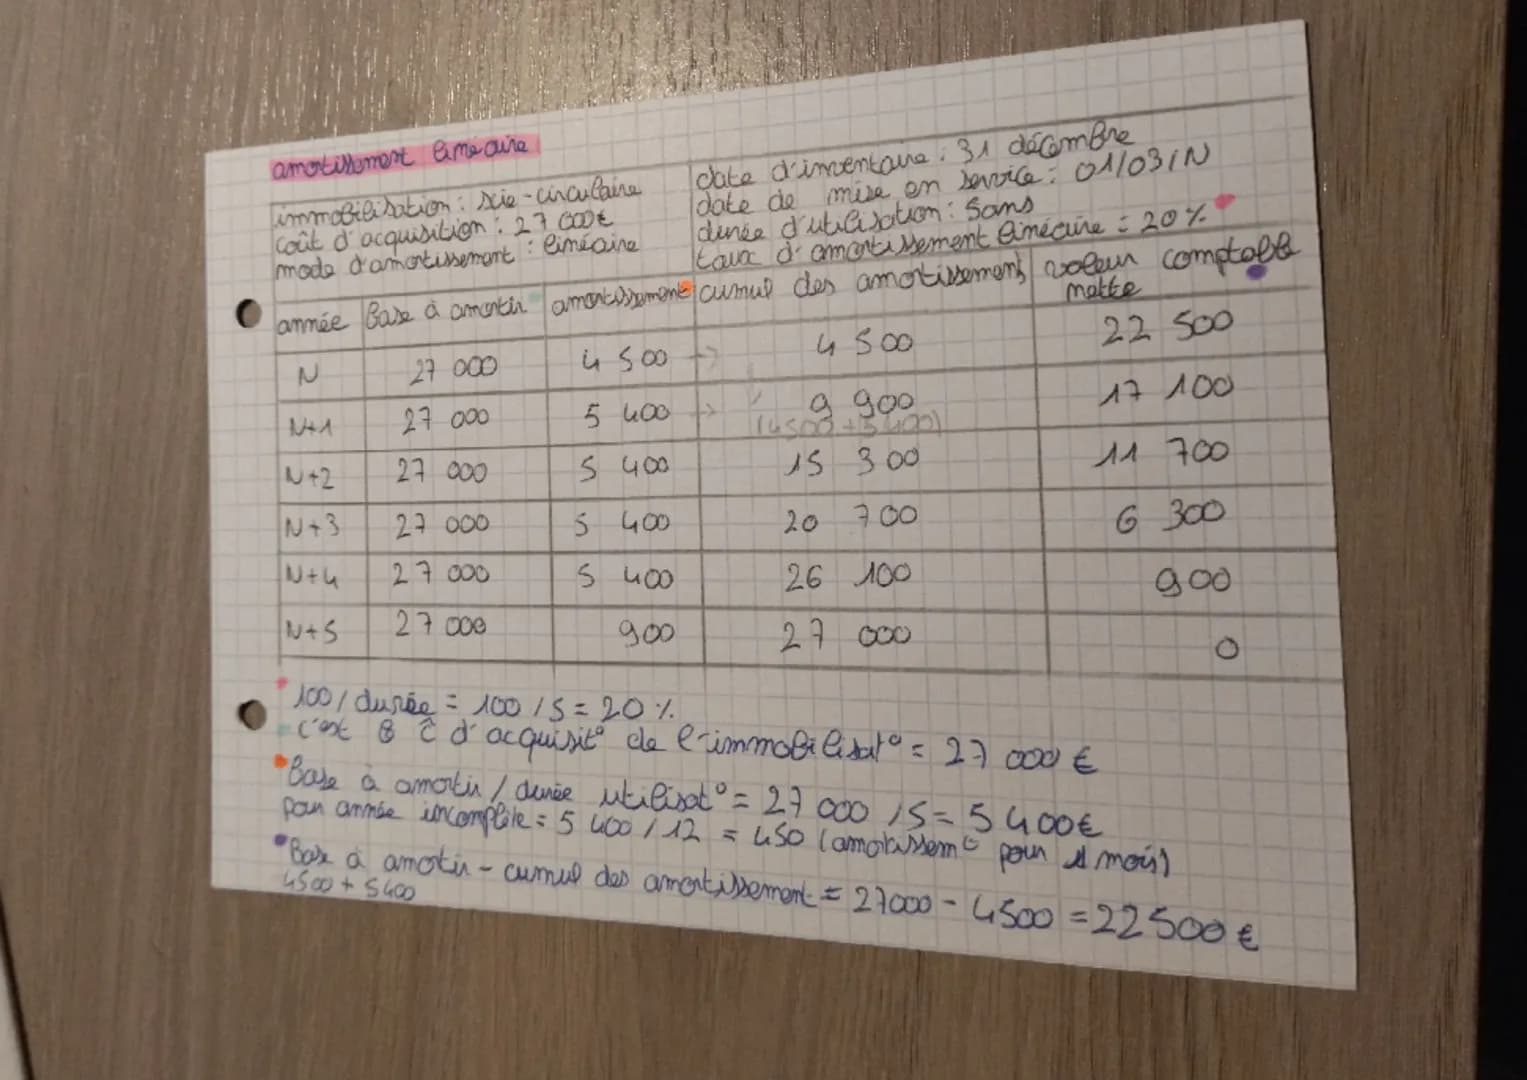 amortissement linéaire
immobilisation : scie-circulaire
coût d'acquisition : 27 000€
mode d'amortissement : linéaire
date d'inventaire : 31 décembre
date de mise en service : 01/03/N
durée d'utilisation : 5ans
taux d'amortissement linéaire = 20 %
année Base à amortir amortissement cumul des amortissements valeur comptable nette
N 27 000 4 500 → 4 500 22 500
N+1 27 000 5 400 → 9 900 17 100
(4500+5400)
N+2 27 000 5 400 15 300 11 700
N+3 27 000 5 400 20 700 6 300
N+4 27 000 5 400 26 100 900
N+5 27 000 900 27 000 0
100 / durée = 100 / 5 = 20 %
c'est d'acquisit° de l'immobilisat° = 27 000 €
Base à amortir / durée utilisat° = 27 000 / 5 = 5 400€
pour année incomplète = 5 400 / 12 = 450 (amortissemt pour 1 mois)
Base à amortir - cumul des amortissement = 27000 - 4500 = 22500 €
4500 + 5400